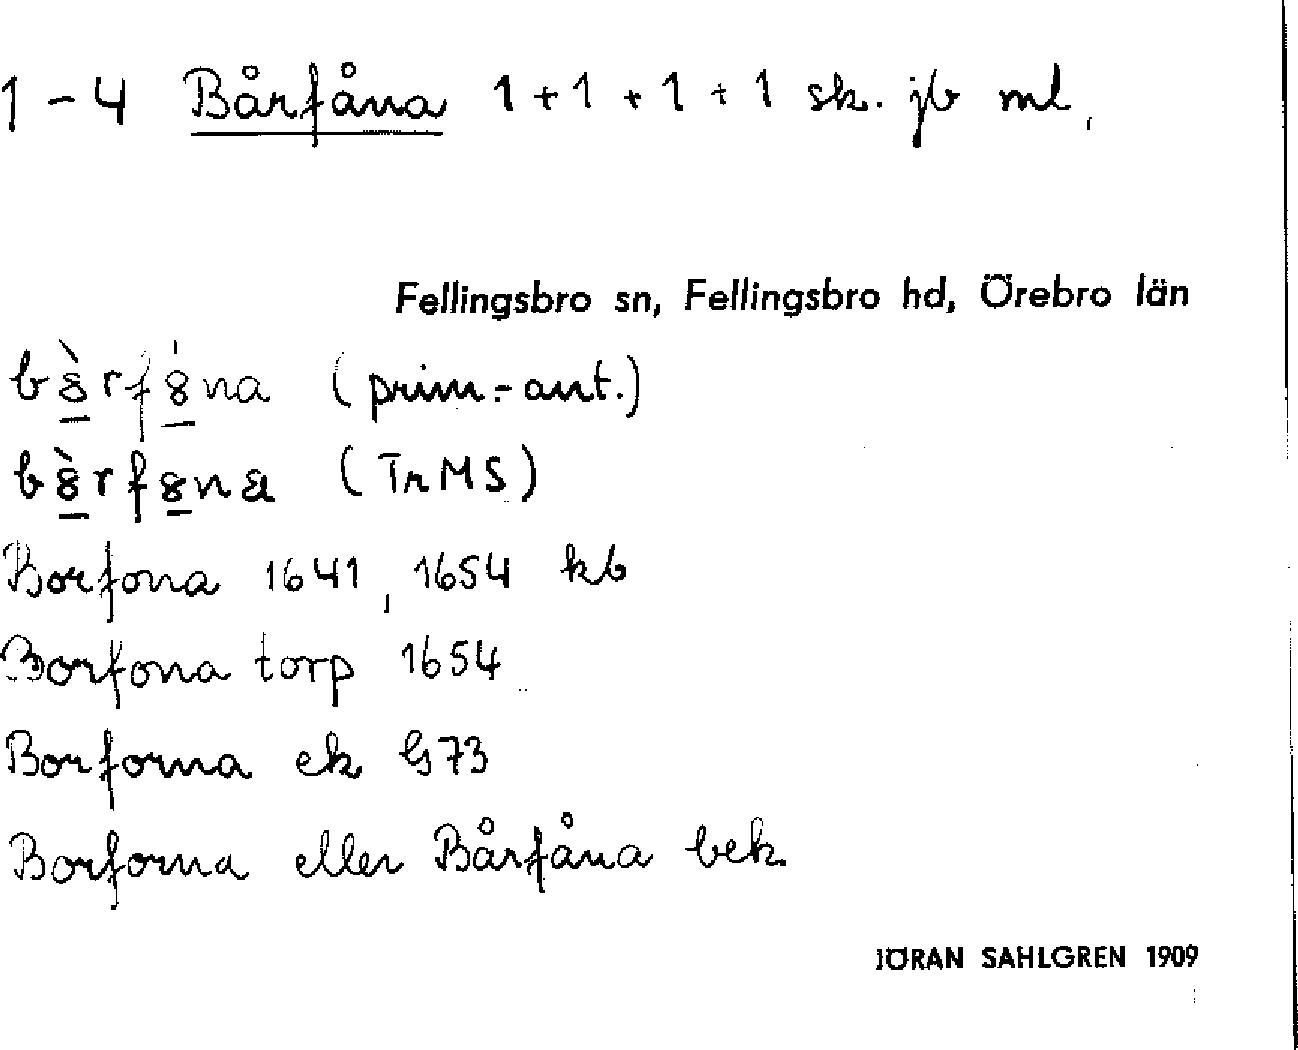 1-4 Bårfåna 1+1+1+1 sk. jb ml,
Fellingsbro sn, Fellingsbro hd, Örebro län
(prim.-ant.)
(TrMS)
Borfona 1641, 1654 kb
Borfona torp 1654
Borforna ek G73
Borforna eller Bårfåna bek.
JÖRAN SAHLGREN 1909